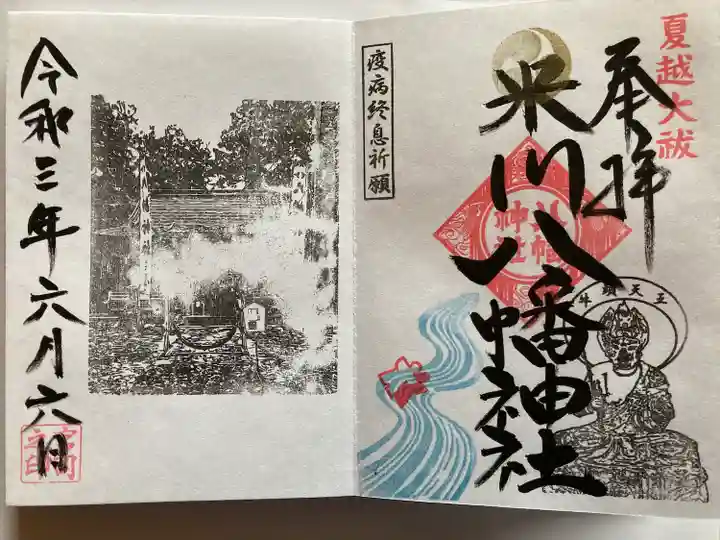 夏越大祓
奉拝
米川八幡神社
八幡神社
牛頭天王
疫病終息祈願
令和三年六月六日